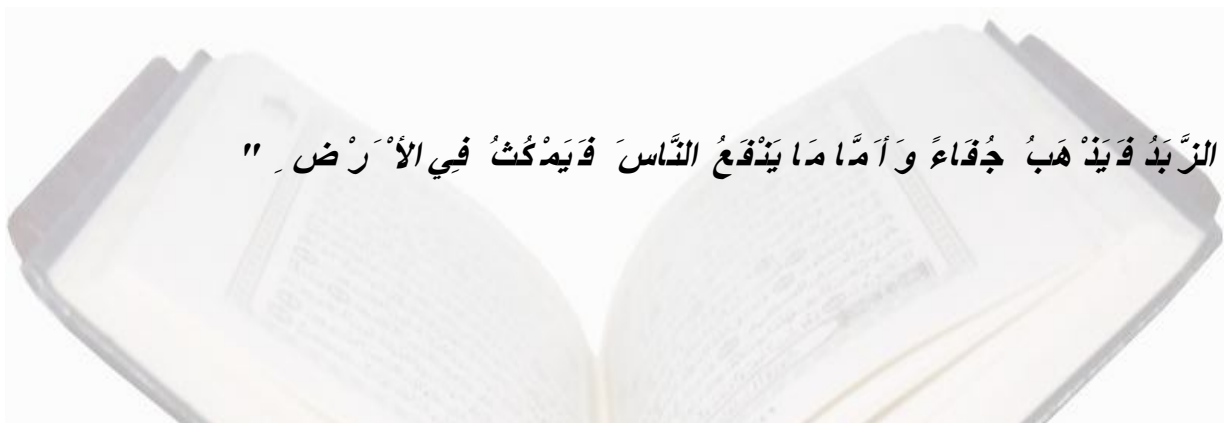 الزَّبَدُ فَيَذْهَبُ جُفَاءً وَأَمَّا مَا يَنْفَعُ النَّاسَ فَيَمْكُثُ فِي الأَْرْضِ "